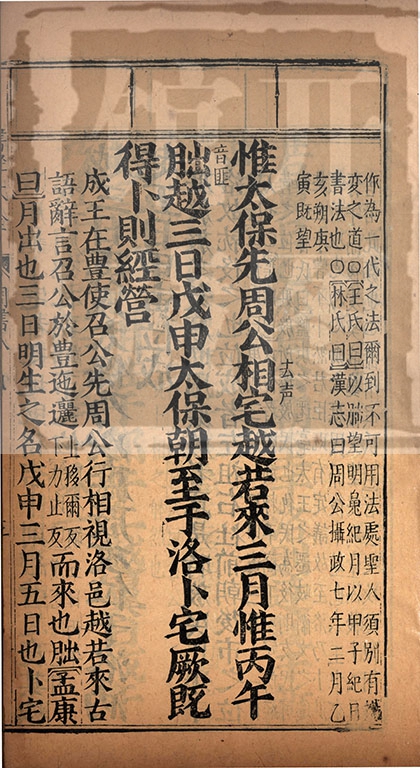 你為一代之法爾到不可用法處聖人須別有
变之道○王氏曰以朏望明魄紀月以甲子紀日
書法也○林氏曰漢志曰周公攝政七年二月乙
亥朔庚
寅既望
惟太保先周公相去声宅越若來三月惟丙午
朏音匪越三日戊申太保朝至于洛卜宅厥既
得卜則經營
成王在豊使召公先周公行相視洛邑越若來古
語辭言召公於豊迤邐上移爾反下力止反而來也朏孟康
曰月出也三日明生之名戊申三月五日也卜宅